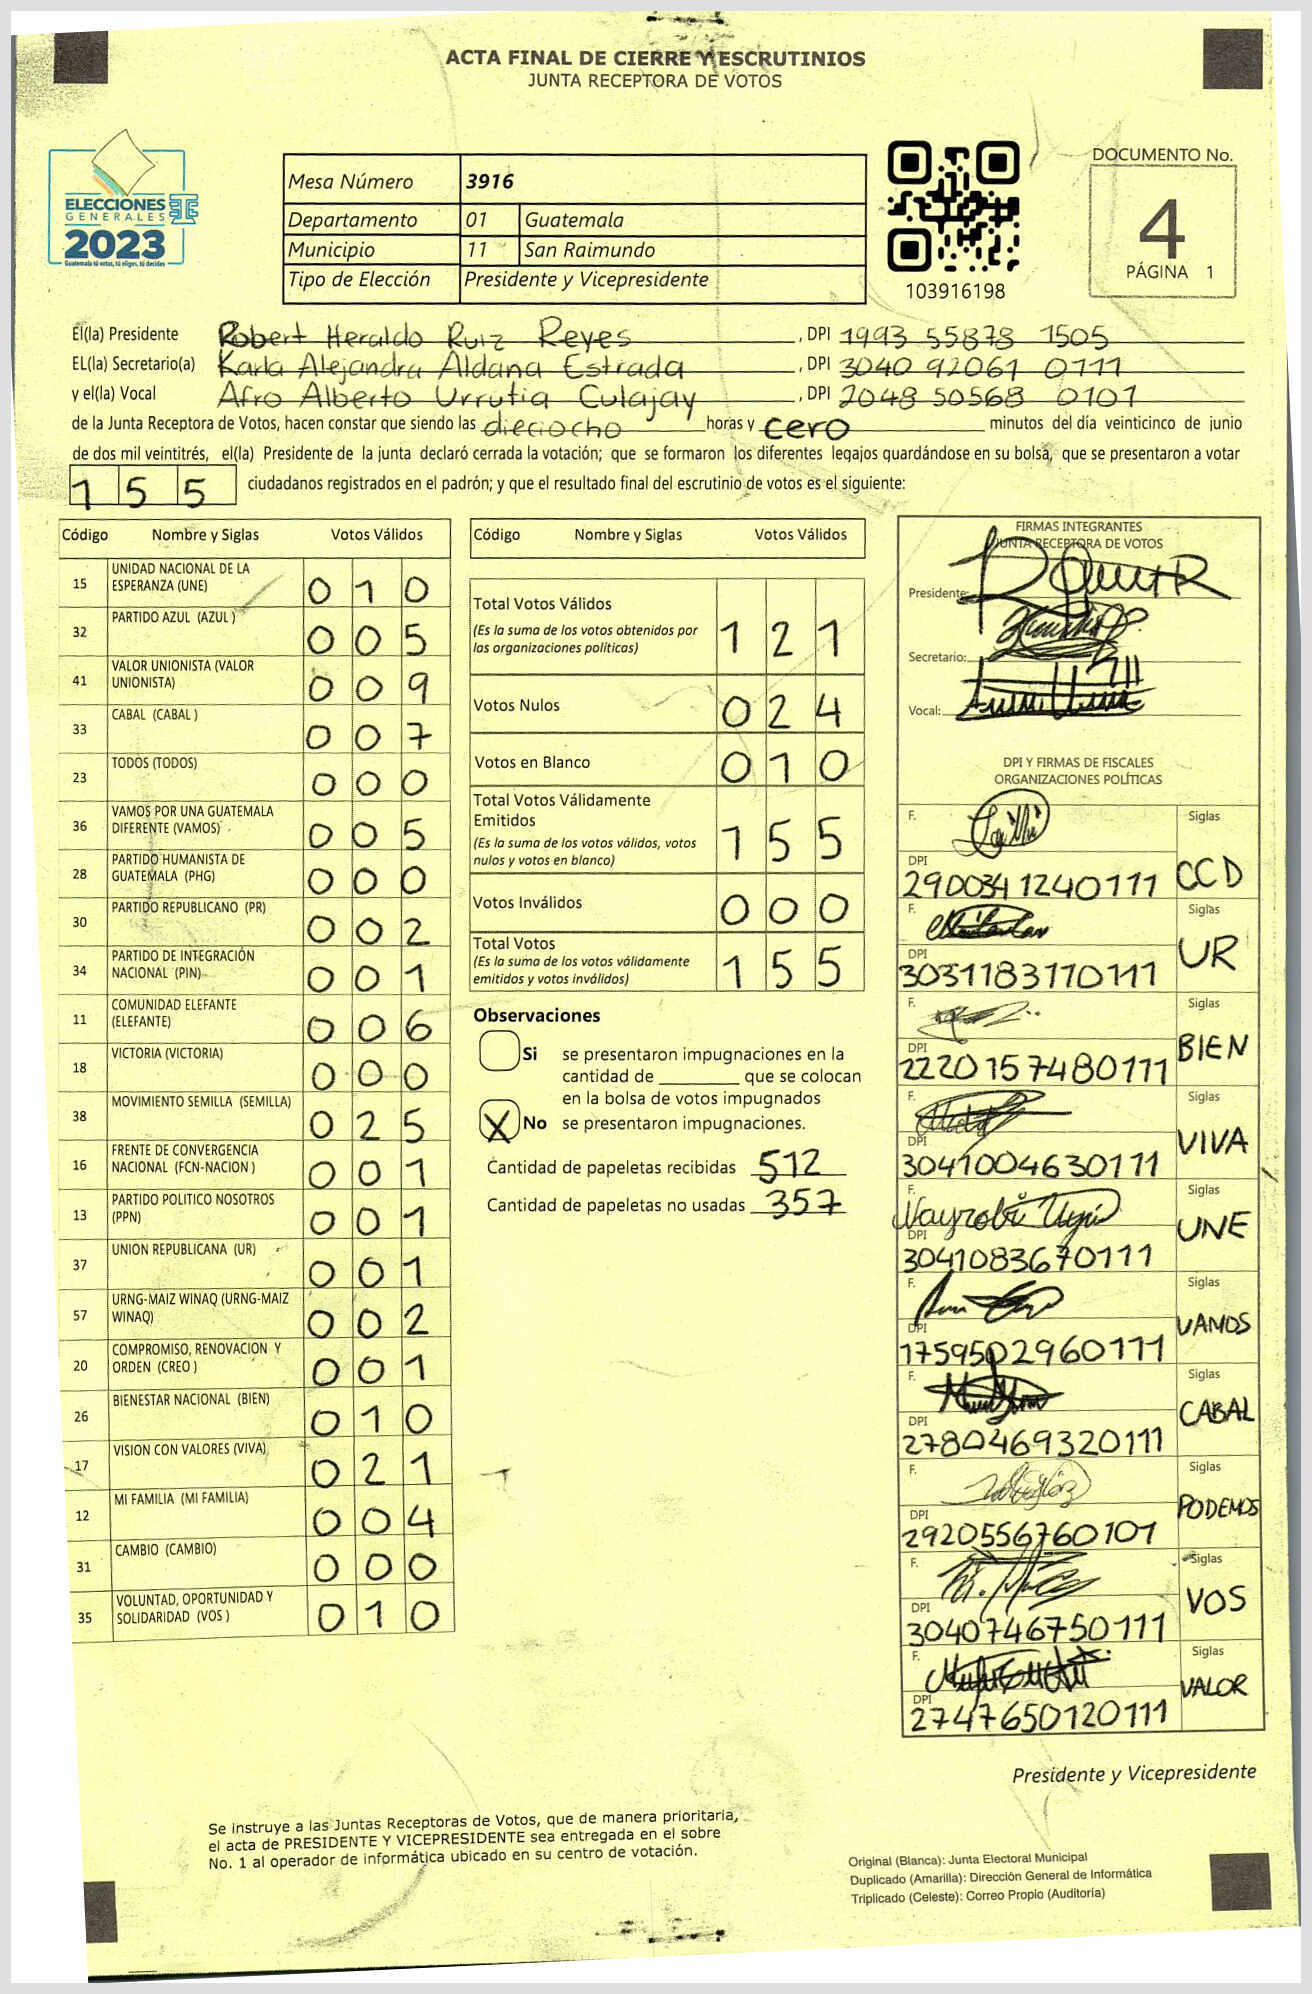 ACTA FINAL DE CIERRE Y ESCRUTINIOS
JUNTA RECEPTORA DE VOTOS
ELECCIONES
GENERALES
2023
Guatemala tú votas, tú eliges, tú decides
Mesa Número 3916
Departamento 01 Guatemala
Municipio 11 San Raimundo
Tipo de Elección Presidente y Vicepresidente
103916198
DOCUMENTO No.
4
PÁGINA 1
El(la) Presidente Robert Heraldo Ruiz Reyes, DPI 1993 55878 1505
EL(la) Secretario(a) Karla Alejandra Aldana Estrada, DPI 3040 92061 0111
y el(la) Vocal Afro Alberto Urrutia Culajay, DPI 2048 50568 0101
de la Junta Receptora de Votos, hacen constar que siendo las dieciocho horas y cero minutos del día veinticinco de junio
de dos mil veintitrés, el(la) Presidente de la junta declaró cerrada la votación; que se formaron los diferentes legajos guardándose en su bolsa, que se presentaron a votar
155 ciudadanos registrados en el padrón; y que el resultado final del escrutinio de votos es el siguiente:
Código Nombre y Siglas Votos Válidos
15 UNIDAD NACIONAL DE LA ESPERANZA (UNE) 010
32 PARTIDO AZUL (AZUL ) 005
41 VALOR UNIONISTA (VALOR UNIONISTA) 009
33 CABAL (CABAL ) 007
23 TODOS (TODOS) 000
36 VAMOS POR UNA GUATEMALA DIFERENTE (VAMOS) 005
28 PARTIDO HUMANISTA DE GUATEMALA (PHG) 000
30 PARTIDO REPUBLICANO (PR) 002
34 PARTIDO DE INTEGRACIÓN NACIONAL (PIN) 001
11 COMUNIDAD ELEFANTE (ELEFANTE) 006
18 VICTORIA (VICTORIA) 000
38 MOVIMIENTO SEMILLA (SEMILLA) 025
16 FRENTE DE CONVERGENCIA NACIONAL (FCN-NACION ) 001
13 PARTIDO POLITICO NOSOTROS (PPN) 001
37 UNION REPUBLICANA (UR) 001
57 URNG-MAIZ WINAQ (URNG-MAIZ WINAQ) 002
20 COMPROMISO, RENOVACION Y ORDEN (CREO ) 001
26 BIENESTAR NACIONAL (BIEN) 010
17 VISION CON VALORES (VIVA) 021
12 MI FAMILIA (MI FAMILIA) 004
31 CAMBIO (CAMBIO) 000
35 VOLUNTAD, OPORTUNIDAD Y SOLIDARIDAD (VOS ) 010
Código Nombre y Siglas Votos Válidos
Total Votos Válidos 121
(Es la suma de los votos obtenidos por
las organizaciones políticas)
Votos Nulos 024
Votos en Blanco 010
Total Votos Válidamente
Emitidos 155
(Es la suma de los votos válidos, votos
nulos y votos en blanco)
Votos Inválidos 000
Total Votos 155
(Es la suma de los votos válidamente
emitidos y votos inválidos)
Observaciones
Si se presentaron impugnaciones en la
cantidad de ________ que se colocan
en la bolsa de votos impugnados
X No se presentaron impugnaciones.
Cantidad de papeletas recibidas 512
Cantidad de papeletas no usadas 357
FIRMAS INTEGRANTES
JUNTA RECEPTORA DE VOTOS
Presidente:
Secretario:
Vocal:
DPI Y FIRMAS DE FISCALES
ORGANIZACIONES POLÍTICAS
F. Siglas
DPI 2900341240111 CCD
F. Siglas
DPI 3031183110111 UR
F. Siglas
DPI 2220157480111 BIEN
F. Siglas
DPI 3041004630111 VIVA
F. Siglas
DPI 3041083670111 UNE
F. Siglas
DPI 1759502960111 VAMOS
F. Siglas
DPI 2780469320111 CABAL
F. Siglas
DPI 2920556760101 PODEMOS
F. Siglas
DPI 3040746750111 VOS
F. Siglas
DPI 2747650120111 VALOR
Presidente y Vicepresidente
Se instruye a las Juntas Receptoras de Votos, que de manera prioritaria,
el acta de PRESIDENTE Y VICEPRESIDENTE sea entregada en el sobre
No. 1 al operador de informática ubicado en su centro de votación.
Original (Blanca): Junta Electoral Municipal
Duplicado (Amarilla): Dirección General de Informática
Triplicado (Celeste): Correo Propio (Auditoría)